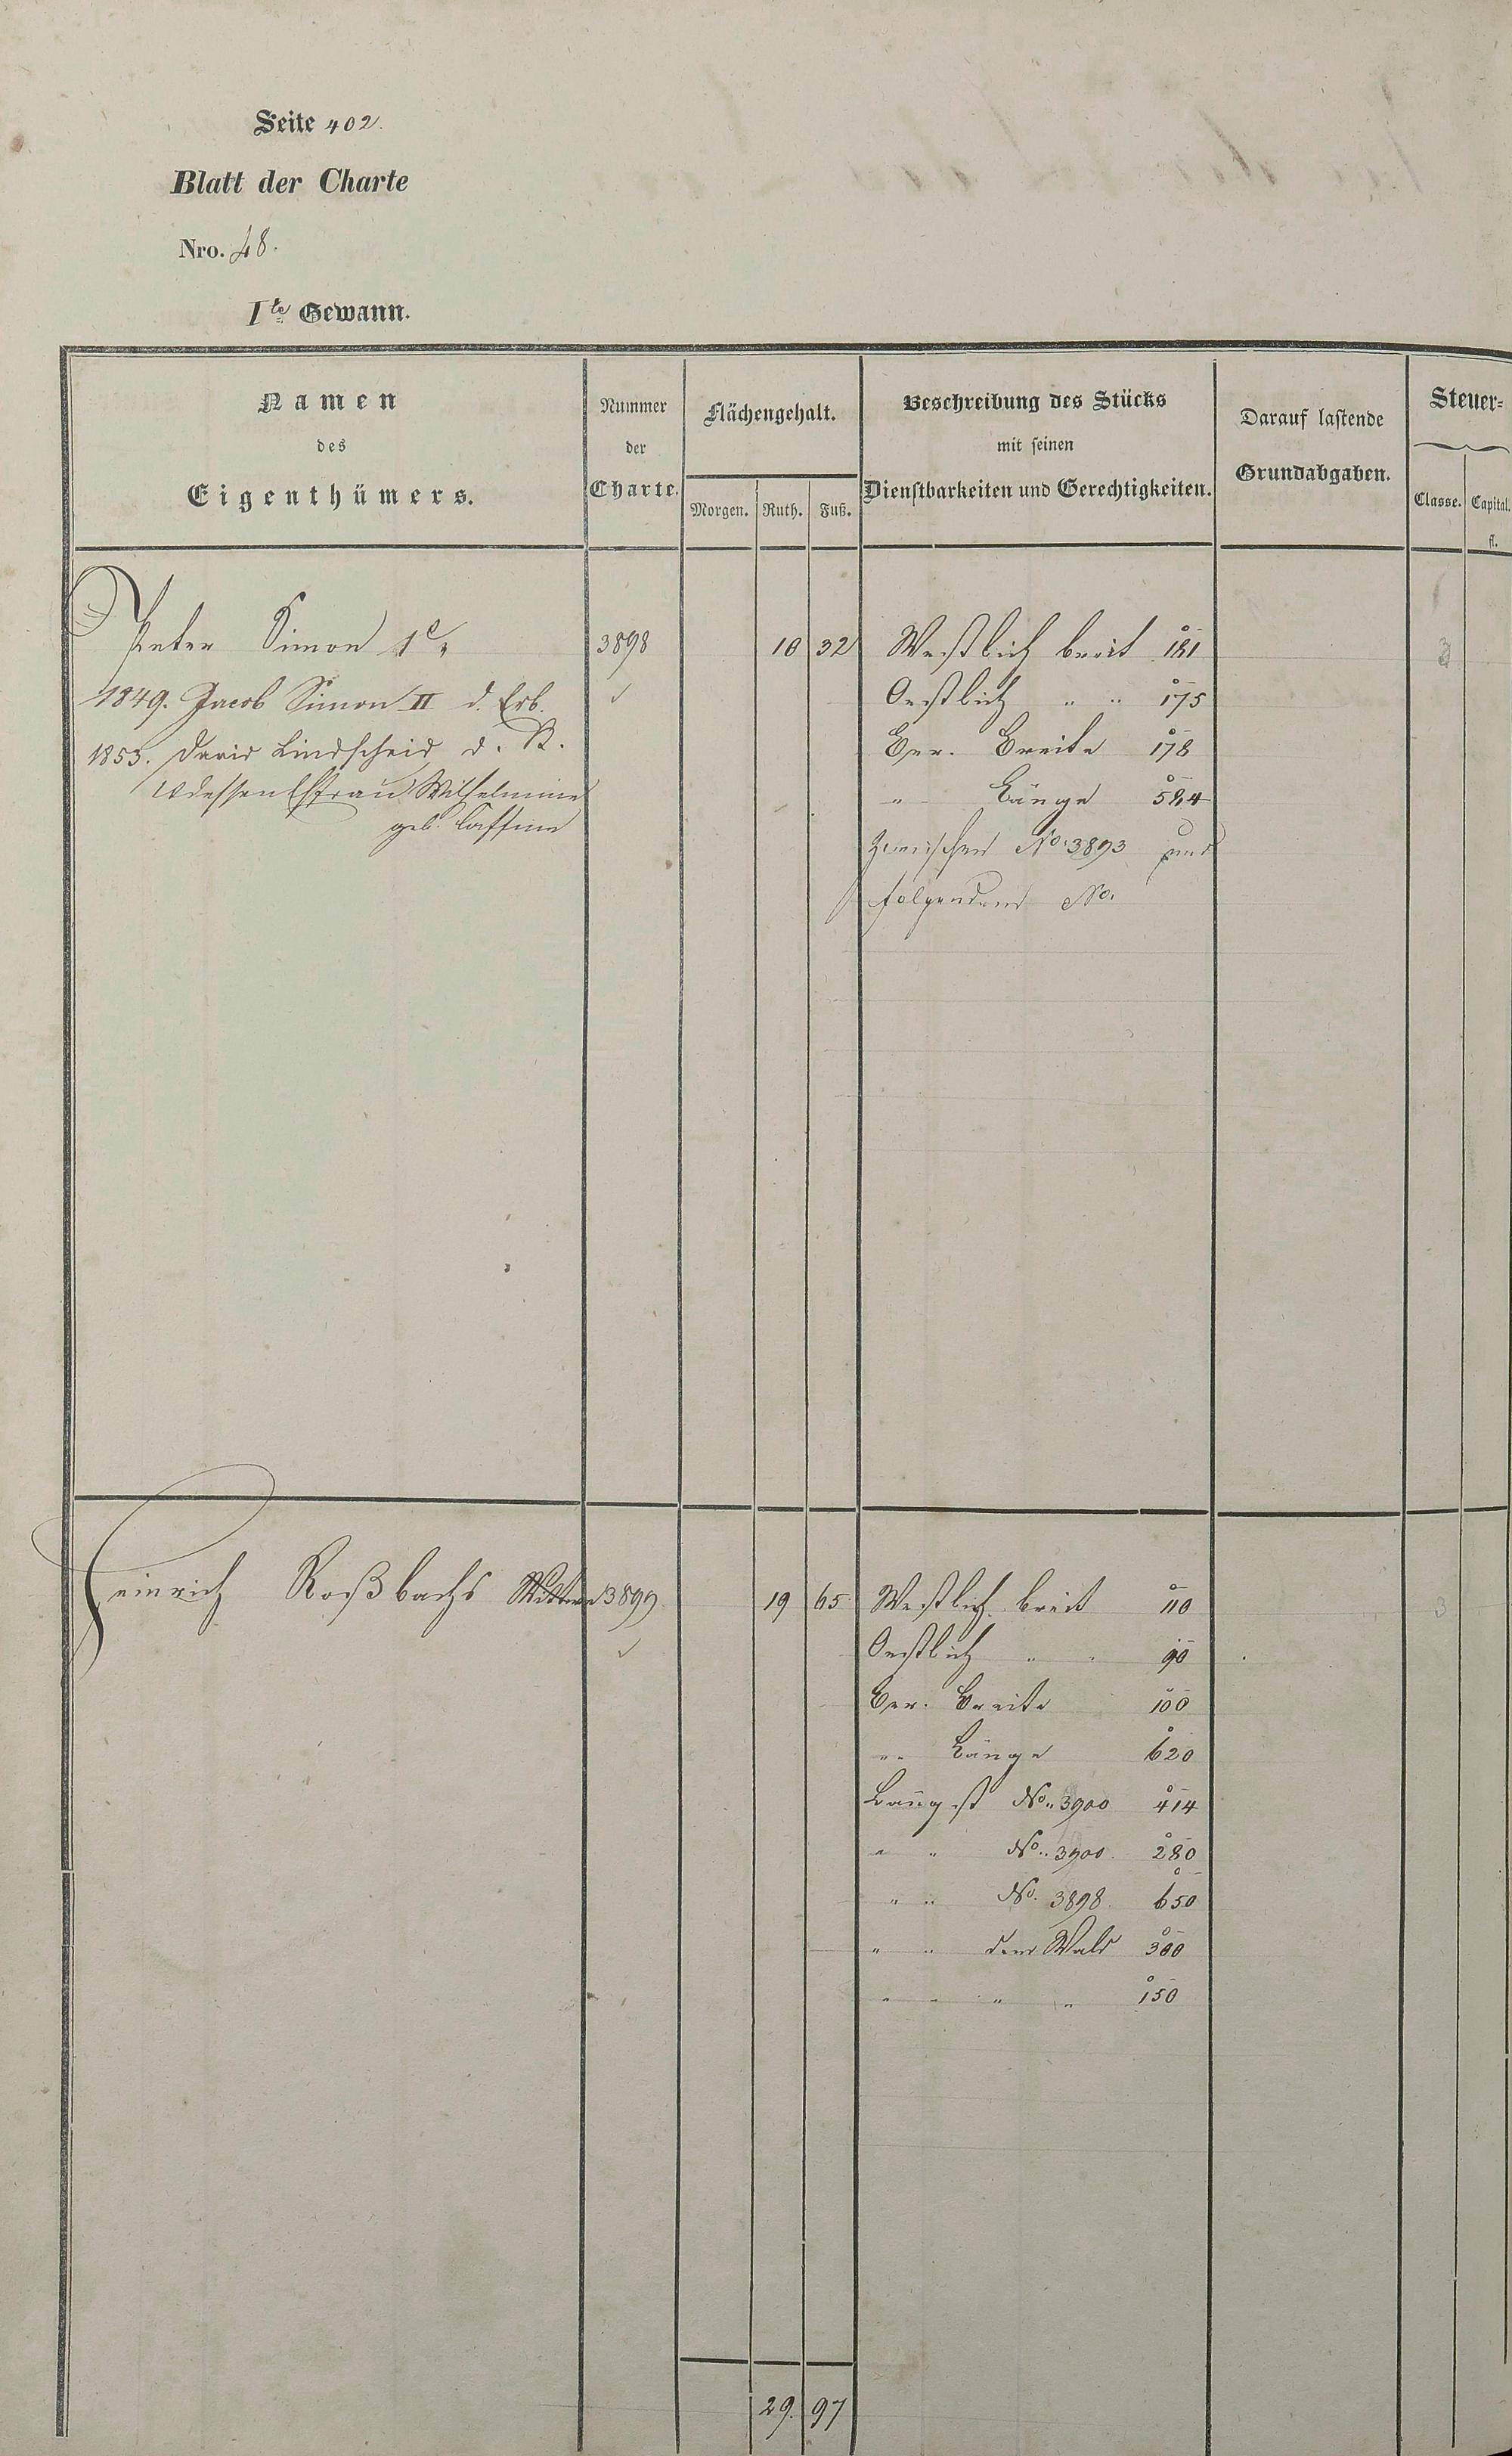 Seite 402.
Blatt der Charte
Nro. 48.
Ite Gewann.
Namen
des
Eigenthümers.
Nummer
der
Charte.
Flächengehalt.
Morgen. Ruth. Fuß.
Beschreibung des Stücks
mit seinen
Dienstbarkeiten und Gerechtigkeiten.
Darauf lastende
Grundabgaben.
Steuer-
Classe. Capital.
fl.
Peter Simon 1r 3898 10 32 Westlich breit 181 3
1849. Jacob Simon II d. Erb. Oestlich " " 175
1853. David Lindscheid d. K. Ver. Breite 178
u dessen Ehfrau Wilhelmine " Länge 584
geb. zwischen No. 3893 und
folgendem No.
Heinrich Roßbachs Wittwe 3899 19 65 Westlich breit 110 3
Oestlich " " 90
Ver. Breite 100
" Länge 620
Längst No. 3900 414
" " No. 3900 280
" " No. 3898 650
" " dem Wald 300
" " " " 150
29. 97